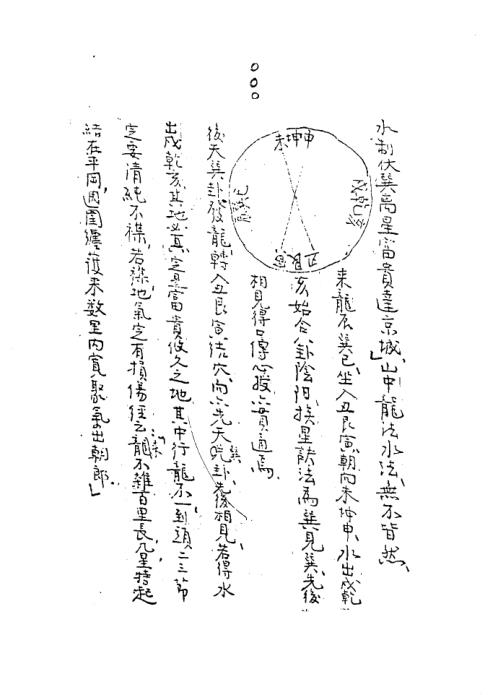 水制伏巽高星富貴達京城」山中龍法水法、無不皆然、
來龍辰巽巳、坐入丑艮寅、朝向未坤申、水出戌乾
亥始合八卦陰陽、挨星訣法為巽見巽、先後
相見得口傳心授、六貫通焉、
未坤申
戌乾亥
丑艮寅
辰巽巳
後天巽卦發龍、轉入丑艮寅結穴、向六先天巽卦、先後相見、若得水
出戌乾亥、其地必真、定是富貴悠久之地、其中行龍不一、到頭二三節
定要清純不襍、若襍地氣定有損傷、經云龍不雜百里長、几星特起
結在平岡、週圍纏護來数里內寬聚氣出朝郎。」